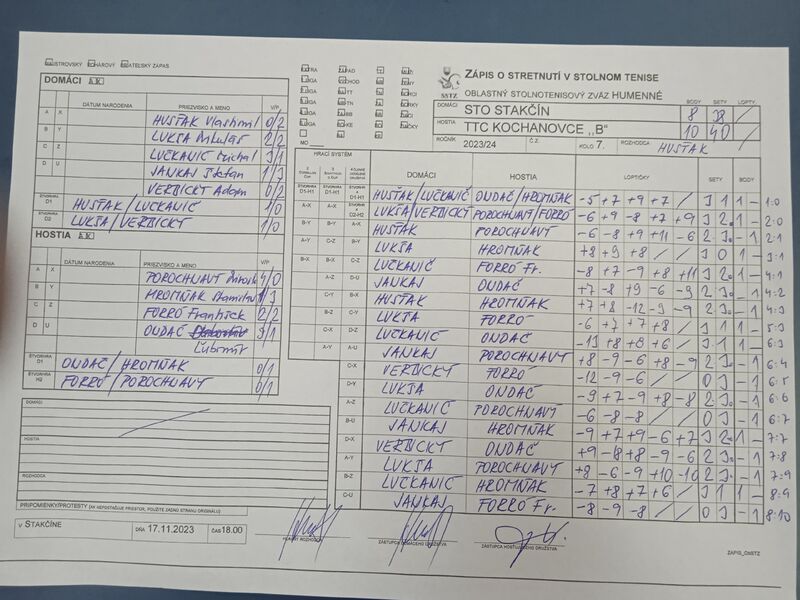 MAJSTROVSKÝ POHÁROVÝ PRIATEĽSKÝ ZÁPAS
ZÁPIS O STRETNUTÍ V STOLNOM TENISE
OBLASTNÝ STOLNOTENISOVÝ ZVÄZ HUMENNÉ
SSTZ
BODY SETY LOPTY
DOMÁCI STO STAKČÍN 8 38 /
HOSTIA TTC KOCHANOVCE ,,B" 10 40 /
ROČNÍK 2023/24 Č.Z. KOLO 7. ROZHODCA HUSŤAK
DOMÁCI AK
DÁTUM NARODENIA PRIEZVISKO A MENO V/P
A X HUSŤAK Vlastimil 0/2
B Y LUKŠA Mikuláš 2/2
C Z LUČKANIČ Michal 3/1
D U JANKAJ Štefan 1/3
VERBICKÝ Adam 0/2
ŠTVORHRA D1 HUSŤAK/LUČKANIČ 1/0
ŠTVORHRA D2 LUKŠA/VERBICKÝ 1/0
HOSTIA AK
DÁTUM NARODENIA PRIEZVISKO A MENO V/P
A X POROCHNAVÝ 4/0
B Y HROMŇAK Stanislav 1/3
C Z FORRÓ František 2/2
D U ONDAČ 3/1
Ľubomír
ŠTVORHRA D1 ONDAČ/HROMŇAK 0/1
ŠTVORHRA H2 FORRÓ/POROCHNAVÝ 0/1
HRACÍ SYSTÉM
DOMÁCI HOSTIA LOPTIČKY SETY BODY
HUSŤAK/LUČKANIČ ONDAČ/HROMŇAK -5 +7 +9 +7 / 3 1 1 - 1:0
LUKŠA/VERBICKÝ POROCHNAVÝ/FORRÓ -6 +9 -8 +7 +9 3 2 1 - 2:0
HUSŤAK POROCHNAVÝ -6 -8 +9 +11 -6 2 3 - 1 2:1
LUKŠA HROMŇAK +8 +9 +8 / / 3 0 1 - 3:1
LUČKANIČ FORRÓ Fr. -8 +7 -9 +8 +11 3 2 1 - 4:1
JANKAJ ONDAČ +7 -8 +9 -6 -9 2 3 - 1 4:2
HUSŤAK HROMŇAK +7 +8 -12 -9 -9 2 3 - 1 4:3
LUKŠA FORRÓ -6 +7 +7 +8 / 3 1 1 - 5:3
LUČKANIČ ONDAČ -13 +8 +8 +6 / 3 1 1 - 6:3
JANKAJ POROCHNAVÝ +8 -9 -6 +8 -9 2 3 - 1 6:4
VERBICKÝ FORRÓ -12 -9 -6 / / 0 3 - 1 6:5
LUKŠA ONDAČ -9 +7 -9 +8 -8 2 3 - 1 6:6
LUČKANIČ POROCHNAVÝ -6 -8 -8 / / 0 3 - 1 6:7
JANKAJ HROMŇAK -9 +7 +9 -6 +7 3 2 1 - 7:7
VERBICKÝ ONDAČ +9 -8 +8 -9 -6 2 3 - 1 7:8
LUKŠA POROCHNAVÝ +8 -6 -9 +10 -10 2 3 - 1 7:9
LUČKANIČ HROMŇAK -7 +8 +7 +6 / 3 1 1 - 8:9
JANKAJ FORRÓ Fr. -8 -9 -8 / / 0 3 - 1 8:10
DOMÁCI
HOSTIA
ROZHODCA
PRIPOMIENKY/PROTESTY (AK NEPOSTAČUJE PRIESTOR, POUŽITE ZADNÚ STRANU ORIGINÁLU)
V STAKČÍNE DŇA 17.11.2023 ČAS 18.00
HLAVNÝ ROZHODCA ZÁSTUPCA DOMÁCEHO DRUŽSTVA ZÁSTUPCA HOSŤUJÚCEHO DRUŽSTVA
ZAPIS_OSSTZ